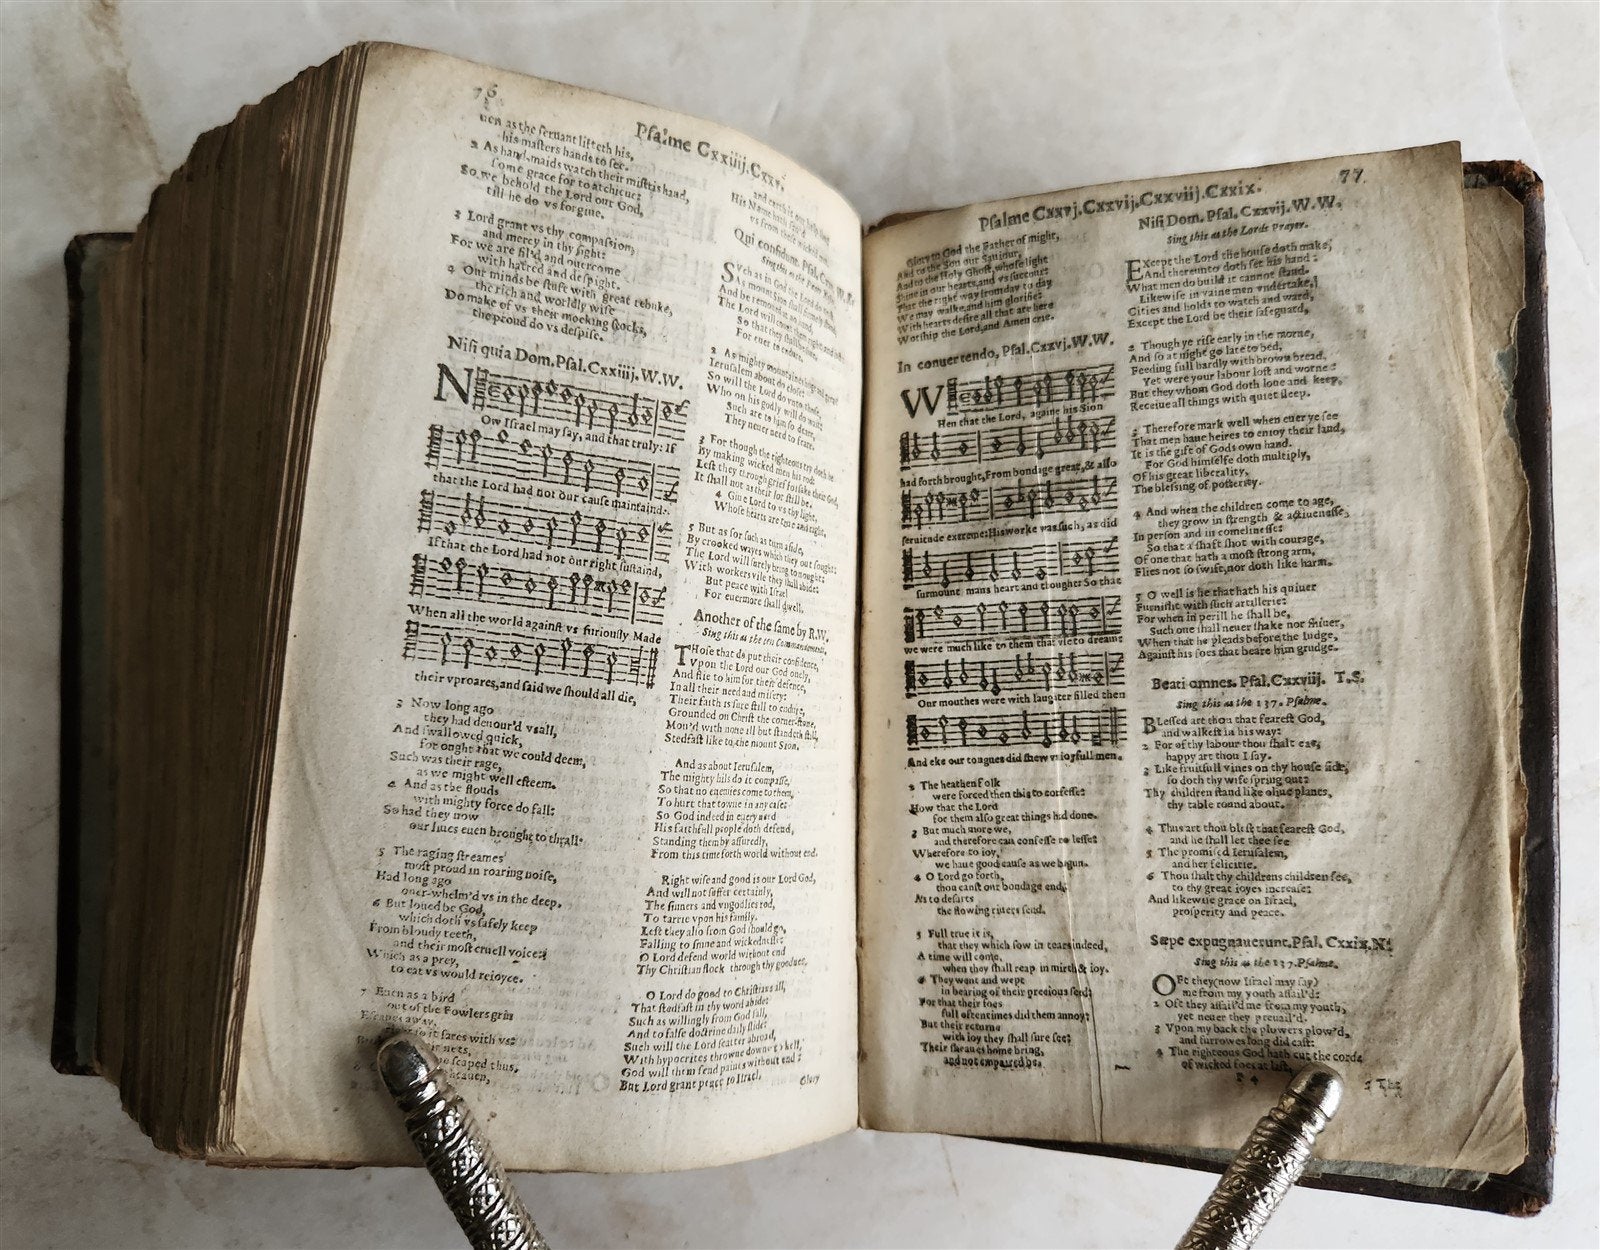 76
Psalme Cxxiiij.Cxxv.
uen as the seruant lifteth his,
his masters hands to see.
2 As hand-maids watch their mistris hand,
some grace for to atchieue:
So we behold the Lord our God,
till he do vs forgiue.
3 Lord grant vs thy compassion,
and mercy in thy sight:
For we are fil'd and ouercome
with hatred and despight.
4 Our minds be stuft with great rebuke,
the rich and worldly wise
Do make of vs their mocking stocks,
the proud do vs despise.
Nisi quia Dom.Psal.Cxxiiij.W.W.
NOw Israel may say, and that truly: If
that the Lord had not our cause maintaind:
If that the Lord had not our right sustaind,
When all the world against vs furiously Made
their vproares,and said we should all die,
3 Now long ago
they had deuour'd vs all,
And swallowed quick,
for ought that we could deem,
Such was their rage,
as we might well esteem.
4 And as the flouds
with mighty force do fall:
So had they now
our liues euen brought to thrall.
5 The raging streames
most proud in roaring noise,
Had long ago
ouer-whelm'd vs in the deep.
6 But loued be God,
which doth vs safely keep
From bloudy teeth,
and their most cruell voice:
Which as a prey,
to eat vs would reioyce.
7 Euen as a bird
out of the Fowlers grin
Escapes away,
right so it fares with vs:
nets,
scaped thus.
heauen,
and earth is our help
His Name hath sau'd
vs from these wicked men.
Qui confidunt. Psal.Cxxv.W.K.
Sing this as the
SVch as in God the Lord do trust,
As mount Sion shall firmely stand,
And be remoued at no hand,
The Lord will count them right and iust,
So that they shall be sure,
For euer to endure.
2 As mighty mountaines huge and great
Ierusalem about do close:
So will the Lord do vnto those,
Who on his godly will do wait:
Such are to him so deare,
They neuer need to feare.
3 For though the righteous try doth he
By making wicked men his rod:
Lest they through grief forsake their God,
It shall not as their lot still be.
4 Giue Lord to vs thy light,
Whose hearts are true and right.
5 But as for such as turn aside,
By crooked wayes which they out sought:
The Lord will surely bring to nought:
With workers vile they shall abide:
But peace with Israel
For euermore shall dwell.
Another of the same by R.W.
Sing this as the ten Commandements.
THose that do put their confidence,
Vpon the Lord our God onely,
And flie to him for their defence,
In all their need and misery:
Their faith is sure still to endure,
Grounded on Christ the corner-stone,
Mou'd with none ill but standeth still,
Stedfast like to the mount Sion.
And as about Ierusalem,
The mighty hils do it compasse,
So that no enemies come to them,
To hurt that towne in any case:
So God indeed in euery need
His faithfull people doth defend,
Standing them by assuredly,
From this time forth world without end.
Right wise and good is our Lord God,
And will not suffer certainly,
The sinners and vngodlies rod,
To tarrie vpon his family.
Left they also from God should go,
Falling to sinne and wickednesse:
O Lord defend world without end
Thy Christian flock through thy goodnes.
O Lord do good to Christians all,
That stedfast in thy word abide:
Such as willingly from God fall,
And to false doctrine daily slide:
Such will the Lord scatter abroad,
With hypocrites throwne downe to hell,
God will them send paines without end:
But Lord grant peace to Israel.
Glory
77
Psalme Cxxvj.Cxxvij.Cxxviij.Cxxix.
Glory to God the Father of might,
And to the Son our Sauiour,
And to the Holy Ghost, whose light
Shine in our hearts, and vs succour:
That the right way from day to day
We may walke, and him glorifie:
With hearts desire all that are here
Worship the Lord, and Amen crie.
In conuertendo, Psal.Cxxvj.W.W.
WHen that the Lord, againe his Sion
had forth brought, From bondage great, & also
seruitude extreme: His worke was such, as did
surmount mans heart and thought: So that
we were much like to them that vse to dreame
Our mouthes were with laughter filled then
And eke our tongues did shew vs ioyfull men.
2 The heathen folk
were forced then this to confesse:
How that the Lord
for them also great things hd done.
3 But much more we,
and therefore can confesse no lesse:
Wherefore to ioy,
we haue good cause as we begun.
4 O Lord go forth,
thou canst our bondage end:
As to desarts
the flowing riuers send.
5 Full true it is,
that they which sow in tears indeed,
A time will come,
when they shall reap in mirth & ioy.
6 They went and wept
in bearing of their precious seed:
For that their foes
full oftentimes did them annoy:
But their returne
with ioy they shall sure see:
Their sheaues home bring,
and not empaired be.
Nisi Dom. Psal. Cxxvij. W.W.
Sing this as the Lords Prayer.
EXcept the Lord the house doth make,
And thereunto doth set his hand:
What men do build it cannot stand.
Likewise in vaine men vndertake,
Cities and holds to watch and ward,
Except the Lord be their safeguard,
2 Though ye rise early in the morne,
And so at night go late to bed,
Feeding full hardly with brown bread,
Yet were your labour lost and worne:
But they whom God doth loue and keep,
Receiue all things with quiet sleep.
3 Therefore mark well when euer ye see
That men haue heires to enioy their land,
It is the gift of Gods own hand.
For God himselfe doth multiply,
Of his great liberality,
The blessing of posterity.
4 And when the children come to age,
they grow in strength & actiuenesse,
In person and in comelinesse:
So that a shaft shot with courage,
Of one that hath a most strong arm,
Flies not so swift, nor doth like harm.
5 O well is he that hath his quiuer
Furnisht with such artillerie:
For when in perill he shall be,
Such one shall neuer shake nor shiuer,
When that he pleads before the Iudge,
Against his foes that beare him grudge.
Beati omnes. Psal.Cxxviij. T.S.
Sing this as the 137. Psalme.
BLessed art thou that fearest God,
and walkest in his way:
2 For of thy labour thou shalt eat,
happy art thou I say.
3 Like fruitfull vines on thy house side,
so doth thy wife spring out:
Thy children stand like oliue plants,
thy table round about.
4 Thus art thou blest that fearest God,
and he shall let thee see
5 The promised Ierusalem,
and her felicitie.
6 Thou shalt thy childrens children see,
to thy great ioyes increase:
And likewise grace on Israel,
prosperity and peace.
Sæpe expugnauerunt.Psal. Cxxix.N.
Sing this as the 137.Psalme.
OFt they (now Israel may say)
me from my youth assail'd:
2 Oft they assail'd me from my youth,
yet neuer they preuail'd.
3 Vpon my back the plowers plow'd,
and surrowes long did cast:
4 The righteous God hath cut the cords
of wicked foes at last,
F 4
5 The